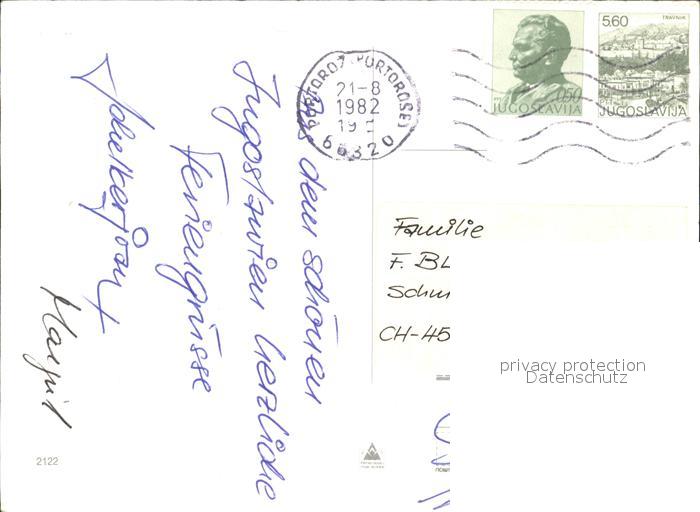 Aus dem schönen
Jugoslawien herzliche
Feriengrüsse
Margrit
PORTOROŽ (PORTOROSE)
21-8
1982
19
66320
0.50
JUGOSLAVIJA
5.60
TRAVNIK
JUGOSLAVIJA
Familie
F. BL
CH-45
privacy protection
Datenschutz
2122